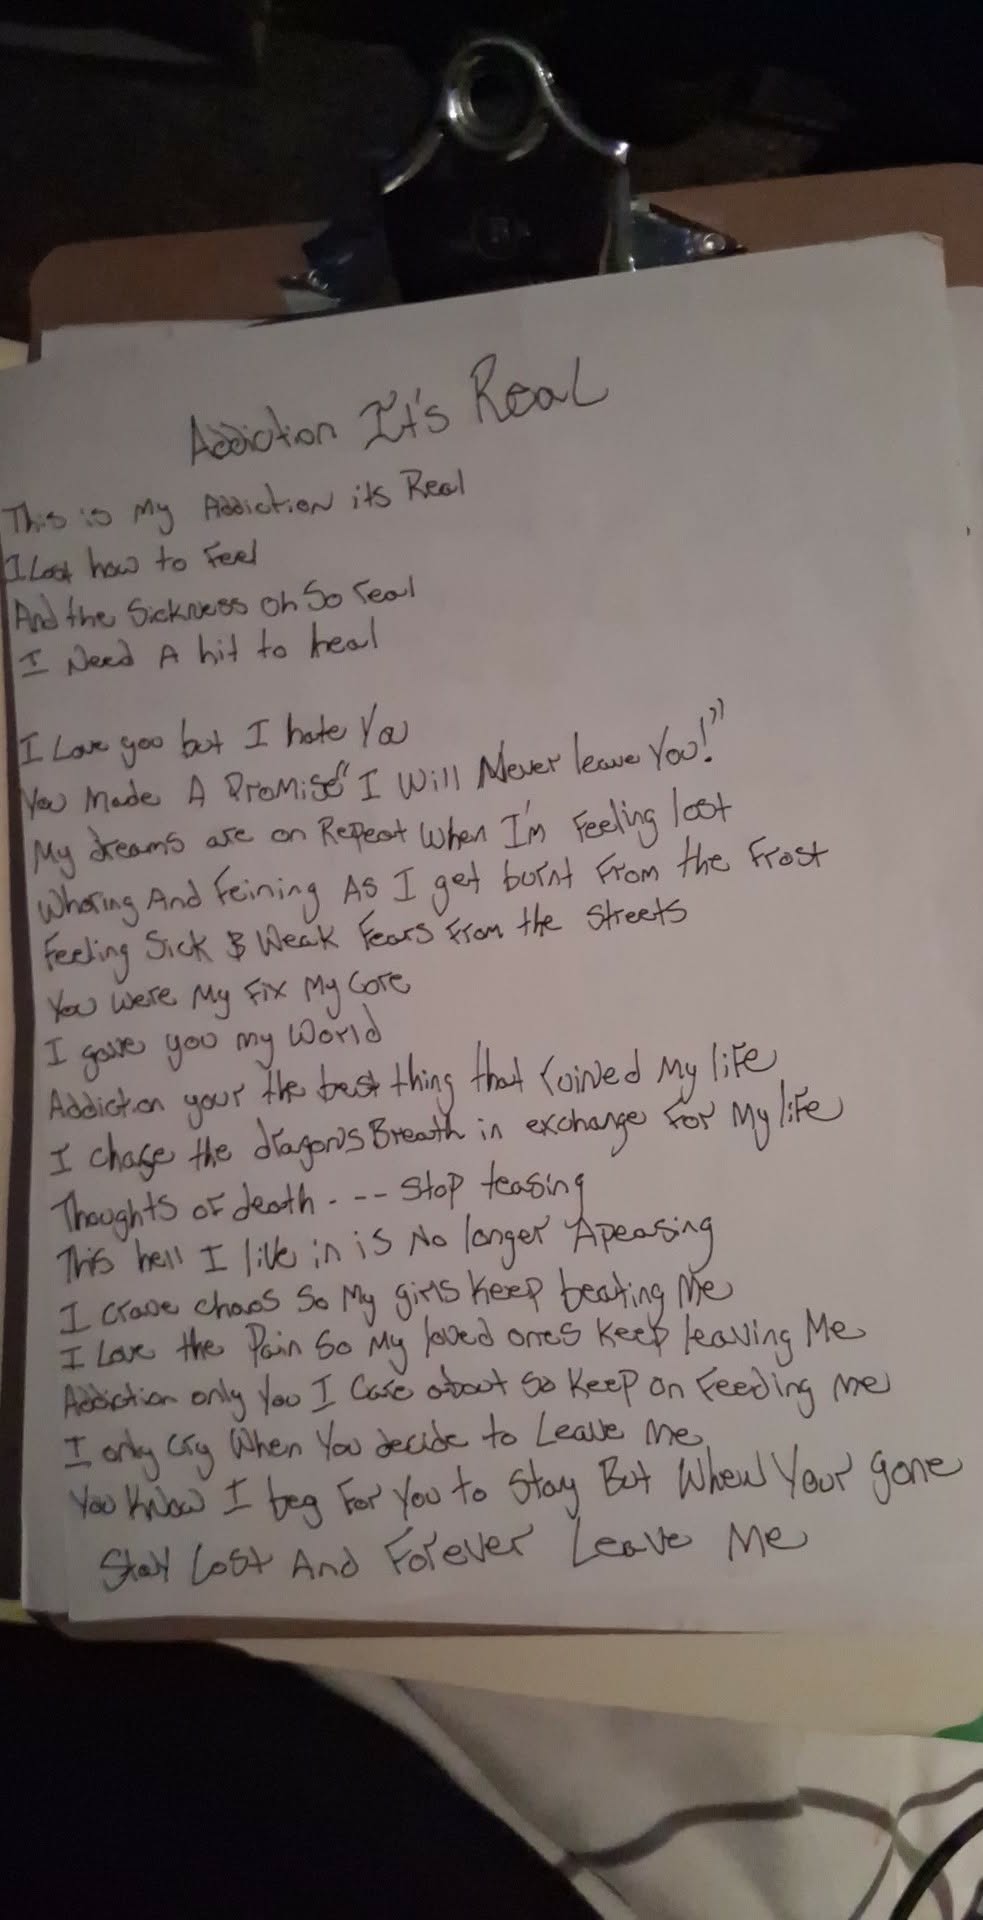 Addiction It's Real
This is My Addiction its Real
I Lost how to Feel
And the Sickness oh So real
I Need A hit to heal
I Love you but I hate You
You Made A Promise "I Will Never leave You!"
My dreams are on Repeat When I'm Feeling lost
Whoring And Feining As I get burnt From the Frost
Feeling Sick & Weak Fears From the Streets
You Were My Fix My Core
I gave you my World
Addiction your the best thing that ruined My life
I chase the dragons Breath in exchange For My life
Thoughts of death - - - - Stop teasing
This hell I live in is No longer Apeasing
I crave chaos So My girls Keep beating Me
I Love the Pain So My loved ones Keep leaving Me
Addiction only You I Care about So Keep on Feeding me
I only Cry When You decide to Leave me
You Know I beg For You to Stay But When Your gone
Stay Lost And Forever Leave Me